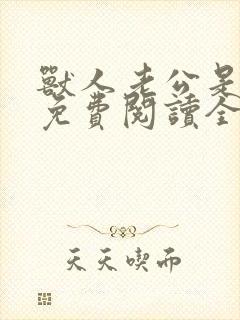 獸人老公是
免費閱讀全
天天喫而